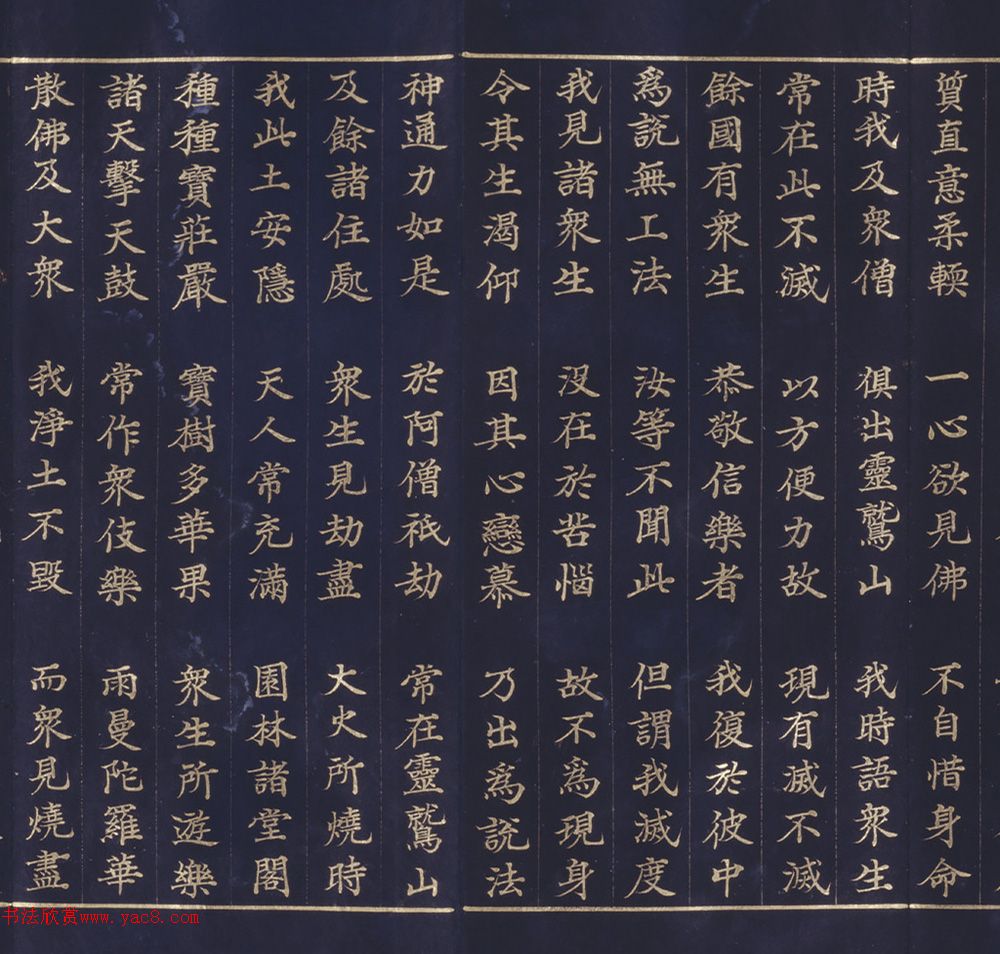 質直意柔輭 一心欲見佛 不自惜身命
時我及衆僧 俱出靈鷲山 我時語衆生
常在此不滅 以方便力故 現有滅不滅
餘國有衆生 恭敬信樂者 我復於彼中
爲說無工法 汝等不聞此 但謂我滅度
我見諸衆生 没在於苦惱 故不爲現身
令其生渴仰 因其心戀慕 乃出爲說法
神通力如是 於阿僧祇劫 常在靈鷲山
及餘諸住處 衆生見劫盡 大火所燒時
我此土安隱 天人常充滿 園林諸堂閣
種種寶莊嚴 寶樹多華果 衆生所遊樂
諸天擊天鼓 常作衆伎樂 雨曼陀羅華
散佛及大衆 我淨土不毀 而衆見燒盡
书法欣赏www.yac8.com